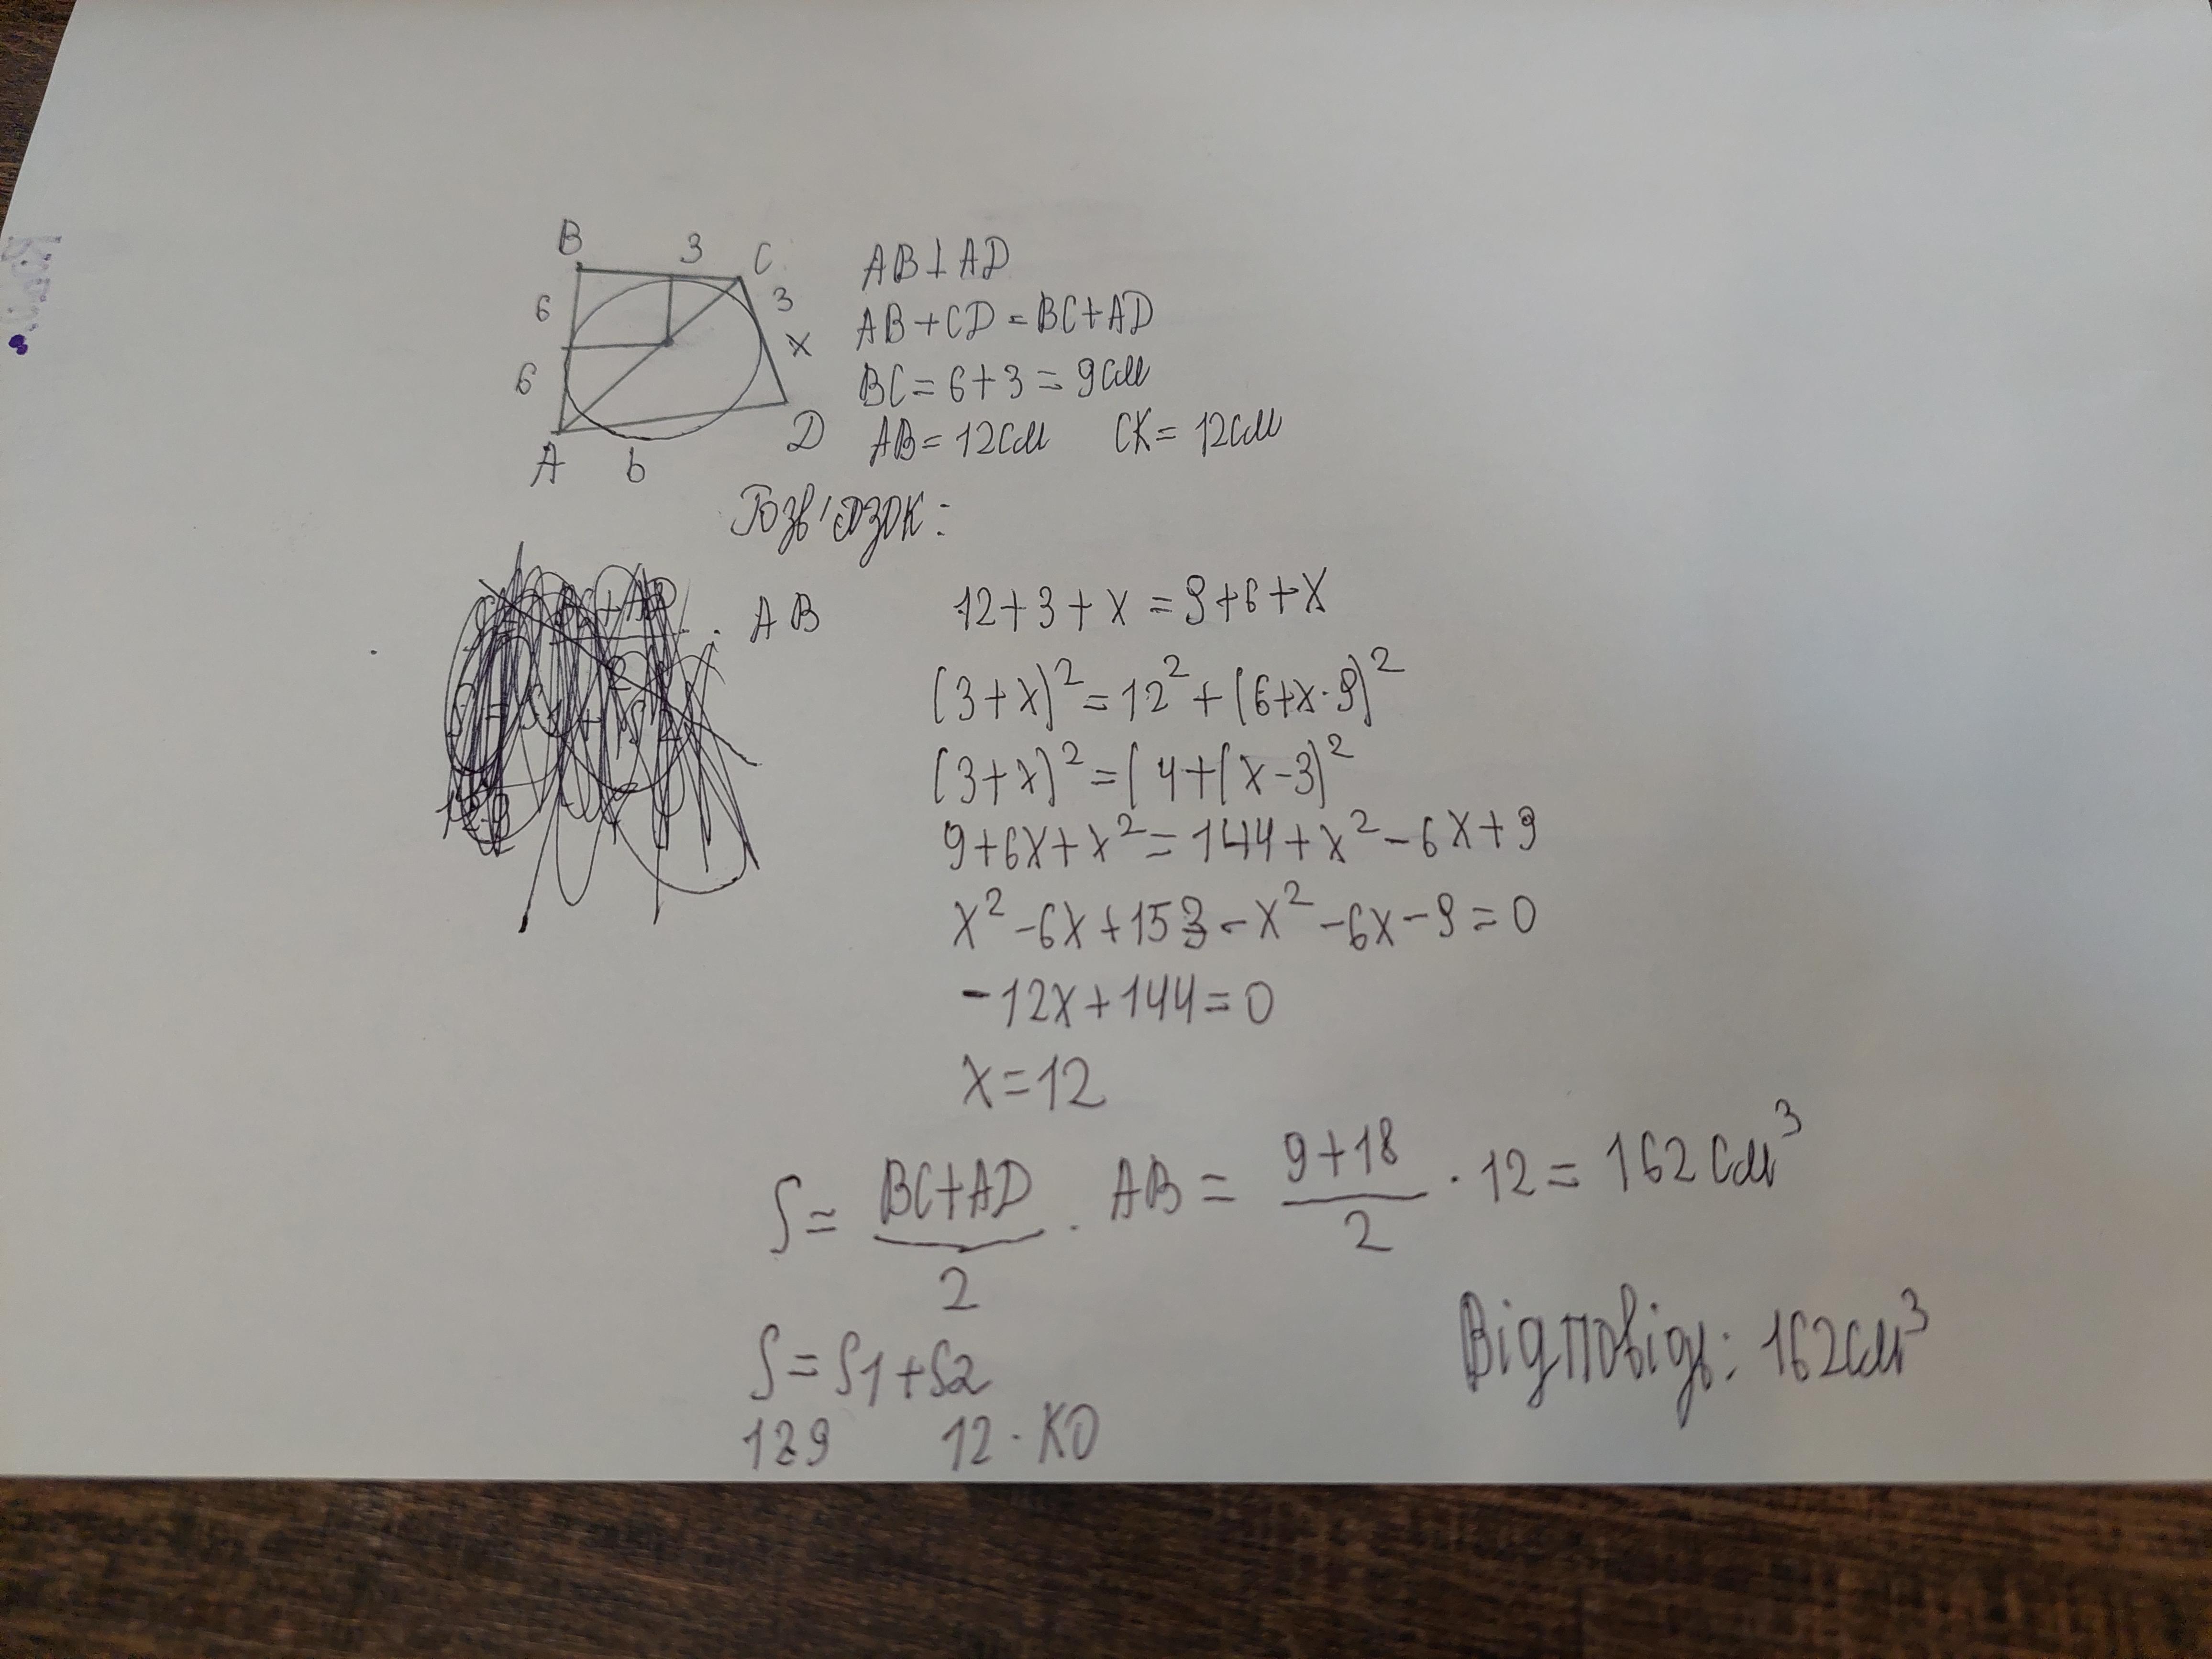 B 3 C
6 3
x
6
A b D
AB⊥AD
AB+CD=BC+AD
BC=6+3=9см
AB=12см CK=12см
Розв'язок:
. AB
12+3+x=9+6+x
(3+x)²=12²+(6+x·9)²
(3+x)²=(4+(x-3)²
9+6x+x²=144+x²-6x+9
x²-6x+153-x²-6x-9=0
-12x+144=0
x=12
S=BC+AD/2 · AB=9+18/2 · 12=162см³
S=S1+S2
12·9 12·KD
Відповідь: 162см³